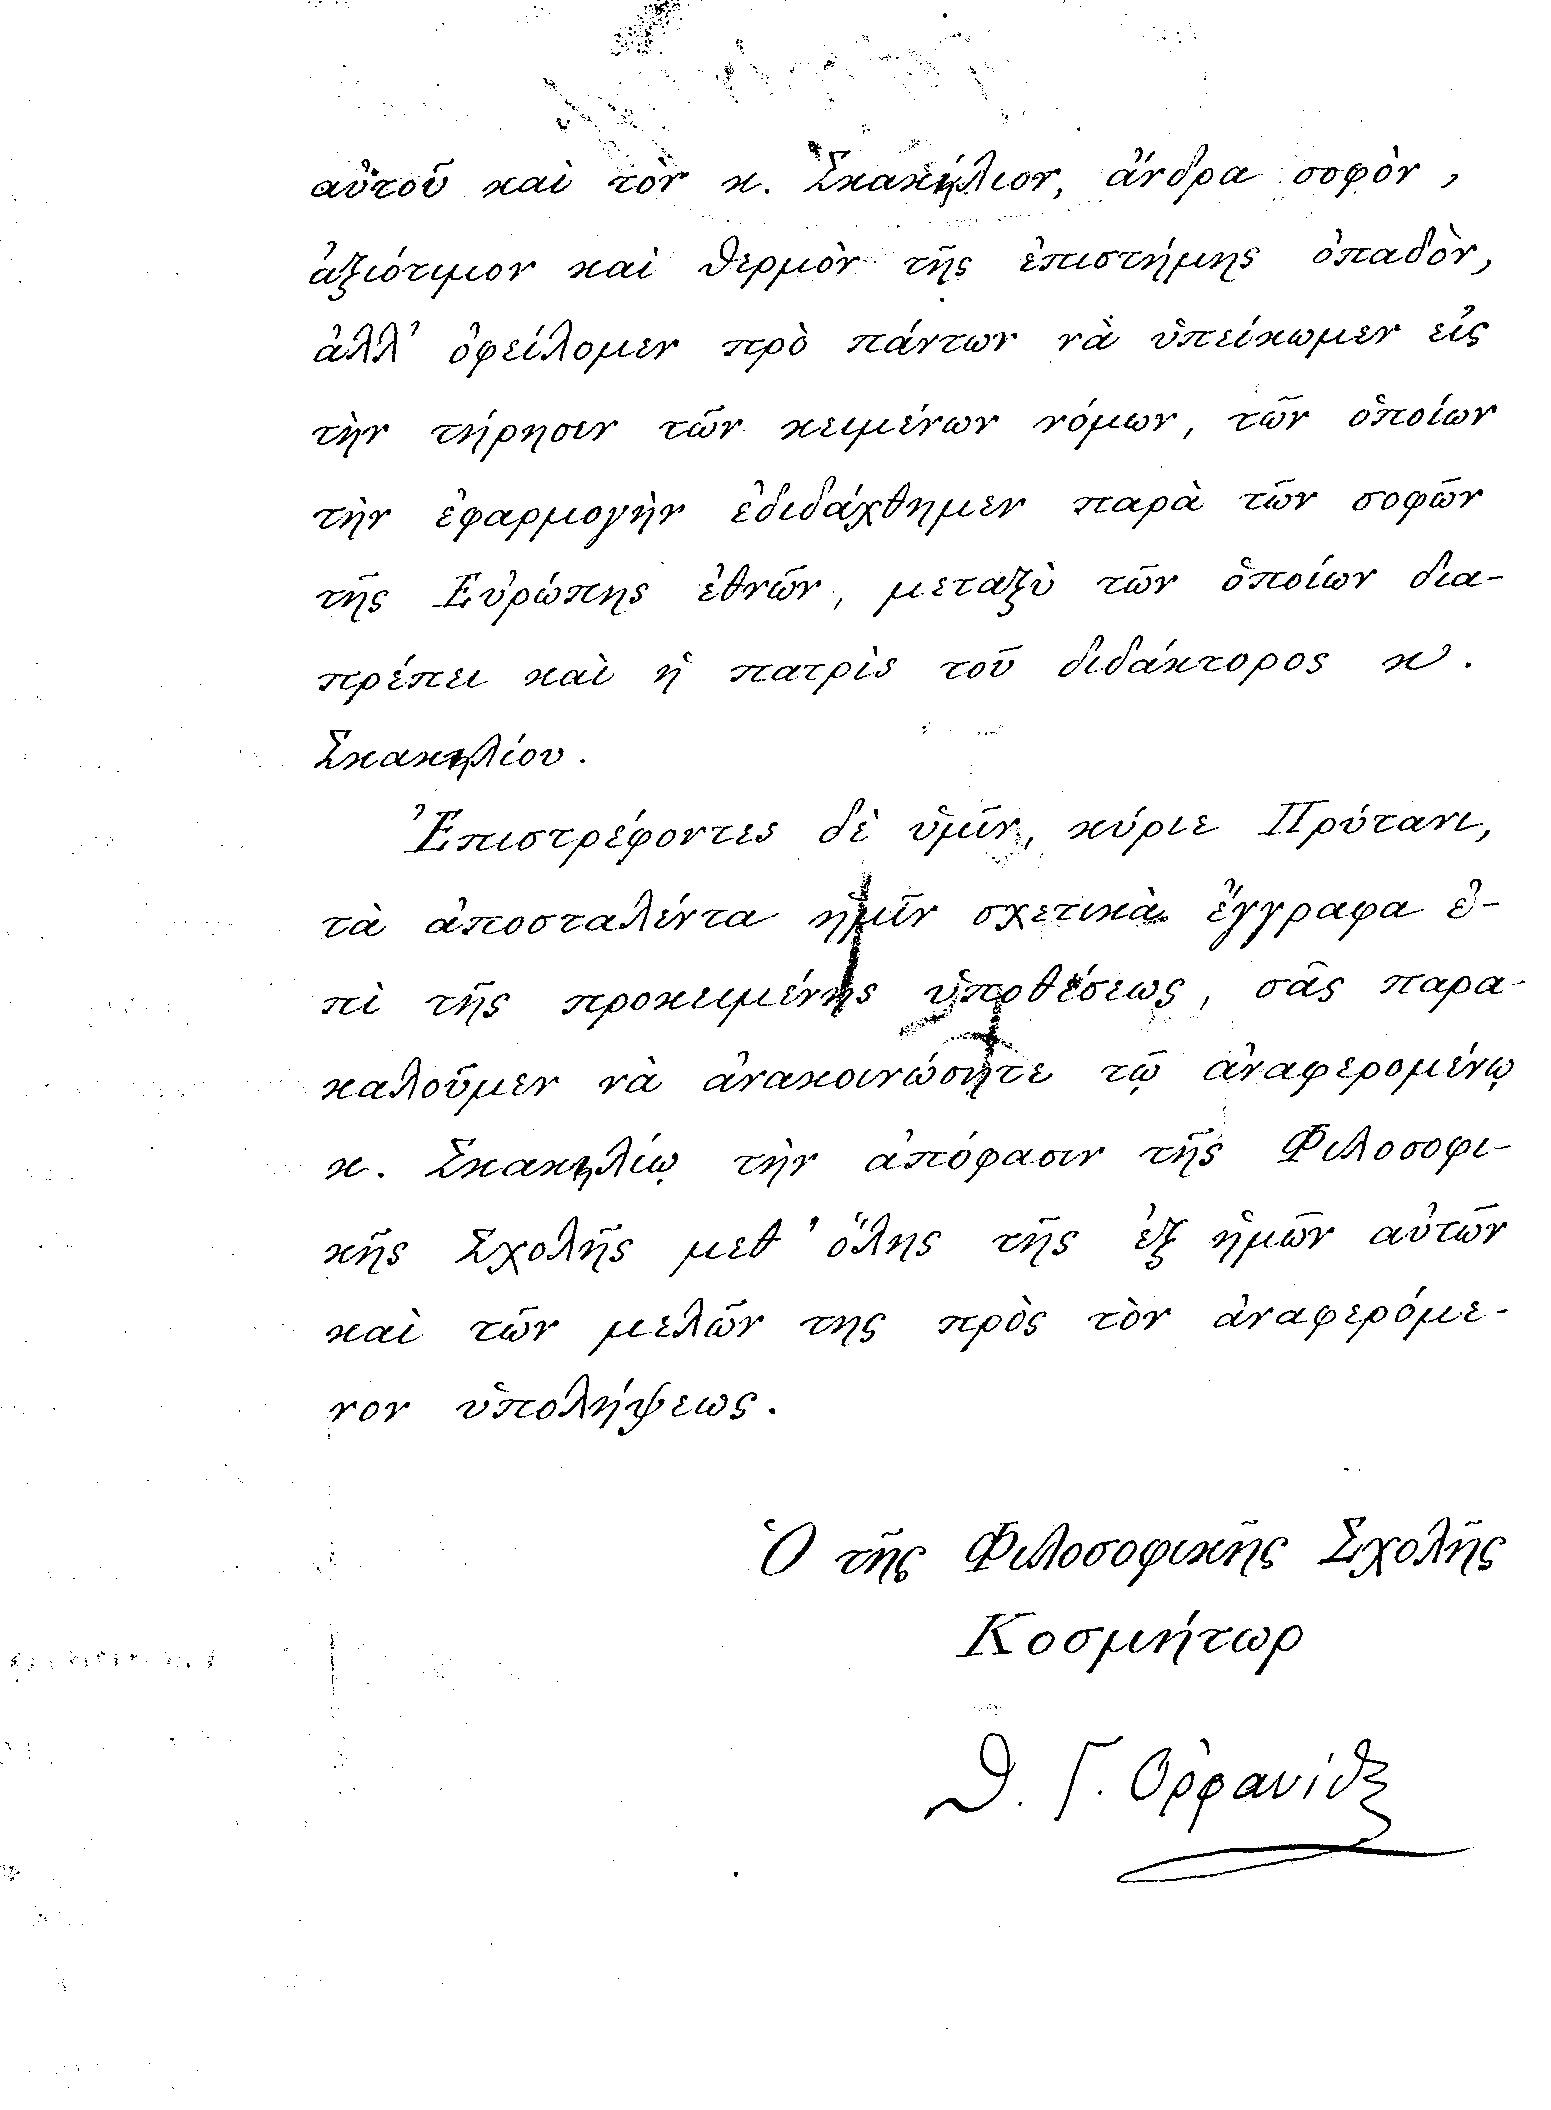 αὐτοῦ καὶ τὸν κ. Σκακήλιον, ἄνδρα σοφὸν,
ἀξιότιμον καὶ θερμὸν τῆς ἐπιστήμης ὀπαδὸν,
ἀλλ' ὀφείλομεν πρὸ πάντων νὰ ὑπείκωμεν εἰς
τὴν τήρησιν τῶν κειμένων νόμων, τῶν ὁποίων
τὴν ἐφαρμογὴν ἐδιδάχθημεν παρὰ τῶν σοφῶν
τῆς Εὐρώπης ἐθνῶν, μεταξὺ τῶν ὁποίων δια-
πρέπει καὶ ἡ πατρὶς τοῦ διδάκτορος κ.
Σκακηλίου.
Ἐπιστρέφοντες δὲ ὑμῖν, κύριε Πρύτανι,
τὰ ἀποσταλέντα ἡμῖν σχετικὰ ἔγγραφα ἐ-
πὶ τῆς προκειμένης ὑποθέσεως, σᾶς παρα-
καλοῦμεν νὰ ἀνακοινώσητε τῷ ἀναφερομένῳ
κ. Σκακηλίῳ τὴν ἀπόφασιν τῆς Φιλοσοφι-
κῆς Σχολῆς μεθ' ὅλης τῆς ἐξ ἡμῶν αὐτῶν
καὶ τῶν μελῶν της πρὸς τὸν ἀναφερόμε-
νον ὑπολήψεως.
Ὁ τῆς Φιλοσοφικῆς Σχολῆς
Κοσμήτωρ
Θ. Γ. Ὀρφανίδης